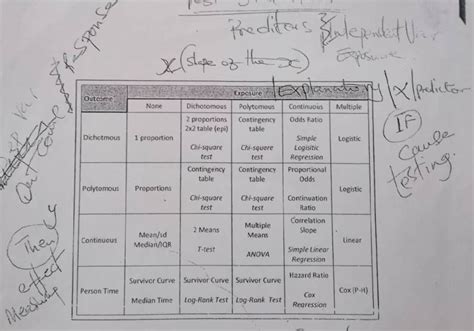 Predictors & Independent Var
Exposure
X (slope of the x)
Explanatory / X / predictor
IF
cause
testing.
Response
Out come
Then Is
effect
Measuring
Outcome
Exposure
None Dichotomous Polytomous Continuous Multiple
Dichotmous
1 proportion
2 proportions
2x2 table (epi)
Chi-square
test
Contingency
table
Chi-square
test
Odds Ratio
Simple
Logisitic
Regression
Logistic
Polytomous
Proportions
Contingency
table
Chi-square
test
Contingency
table
Chi-square
test
Proportional
Odds
Continuation
Ratio
Logistic
Continuous
Mean/sd
Median/IQR
2 Means
T-test
Multiple
Means
ANOVA
Correlation
Slope
Simple Linear
Regression
Linear
Person Time
Survivor Curve
Median Time
Survivor Curve
Log-Rank Test
Survivor Curve
Log-Rank Test
Hazard Ratio
Cox
Regression
Cox (P-H)